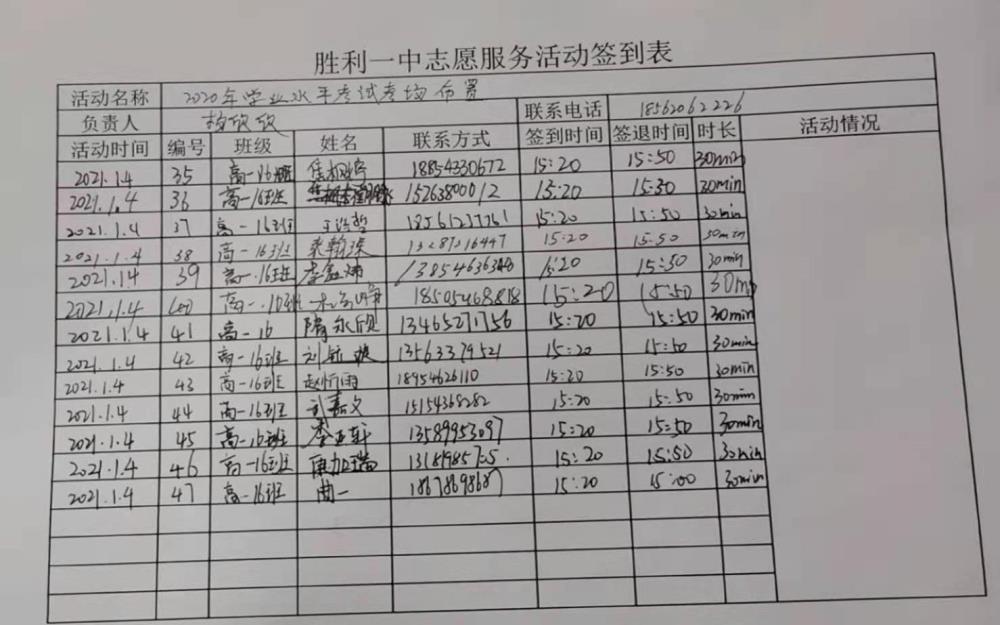 胜利一中志愿服务活动签到表
活动名称 2020年学业水平考试考场布置 联系电话 18562062226
负责人
活动时间 编号 班级 姓名 联系方式 签到时间 签退时间 时长 活动情况
2021.1.4 35 高一16班 18854330672 15:20 15:50 30min
2021.1.4 36 高一16班 15263800012 15:20 15:30 30min
2021.1.4 37 高一16班 王浩哲 15:20 15:50 30min
2021.1.4 38 高一16班 15:20 15:50 30min
2021.14 39 高一.16班 15:20 15:50 30min
2021.1.4 高一.16班 18505468818 15:20 15:50 30min
2021.1.4 41 高一16 隋永欣 13465271756 15:20 15:50 30min
2021.1.4 42 高一16班 13563379521 15:20 15:50 30min
2021.1.4 43 高一16班 赵忻雨 18954626110 15:20 15:50 30min
2021.1.4 44 高一16班 刘嘉文 15154368282 15:20 15:50 30min
2021.1.4 45 高一16班 李正轩 13589953097 15:20 15:50 30min
2021.1.4 46 高一16班 15:20 15:50 30min
2021.1.4 47 高一16班 曲一 18678698687 15:20 15:00 30min